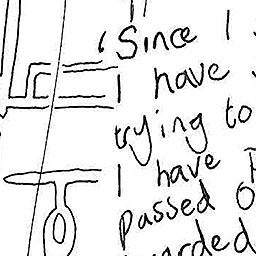 Since I
I have
trying to
I have
passed O
arded